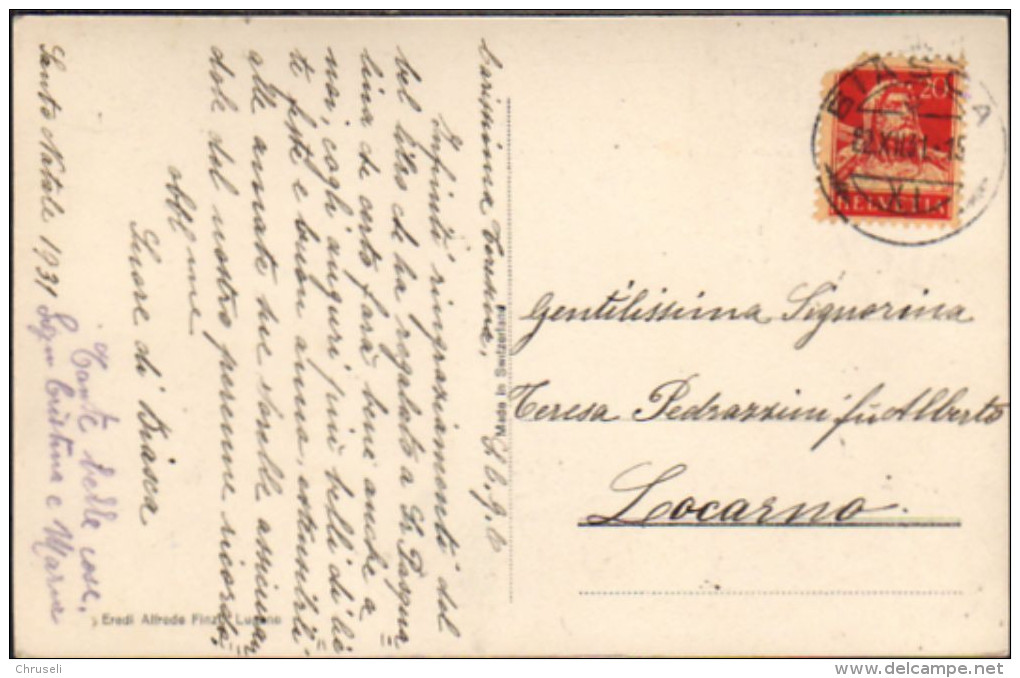 Carissima Teresina,
Infiniti ringraziamenti del
bel libro che ha regalato a Sr Pasqua
lina di certo farà bene anche a
noi, cogli auguri più belli di lie
te feste e buon anno, estensibili
alle amate sue sorelle assicuran
dole del nostro perenne ricordo,
obbl me
Suore di Biasca
Santo Natale 1931
Tante belle cose,
Cristina e Maria
Made in Switzerland
Eredi Alfredo Finzi Lugano
BIASCA
XII.31-15
XI
20
HELVETIA
Gentilissima Signorina
Teresa Pedrazzini fu Alberto
Locarno.
Chruseli
delcampe.net